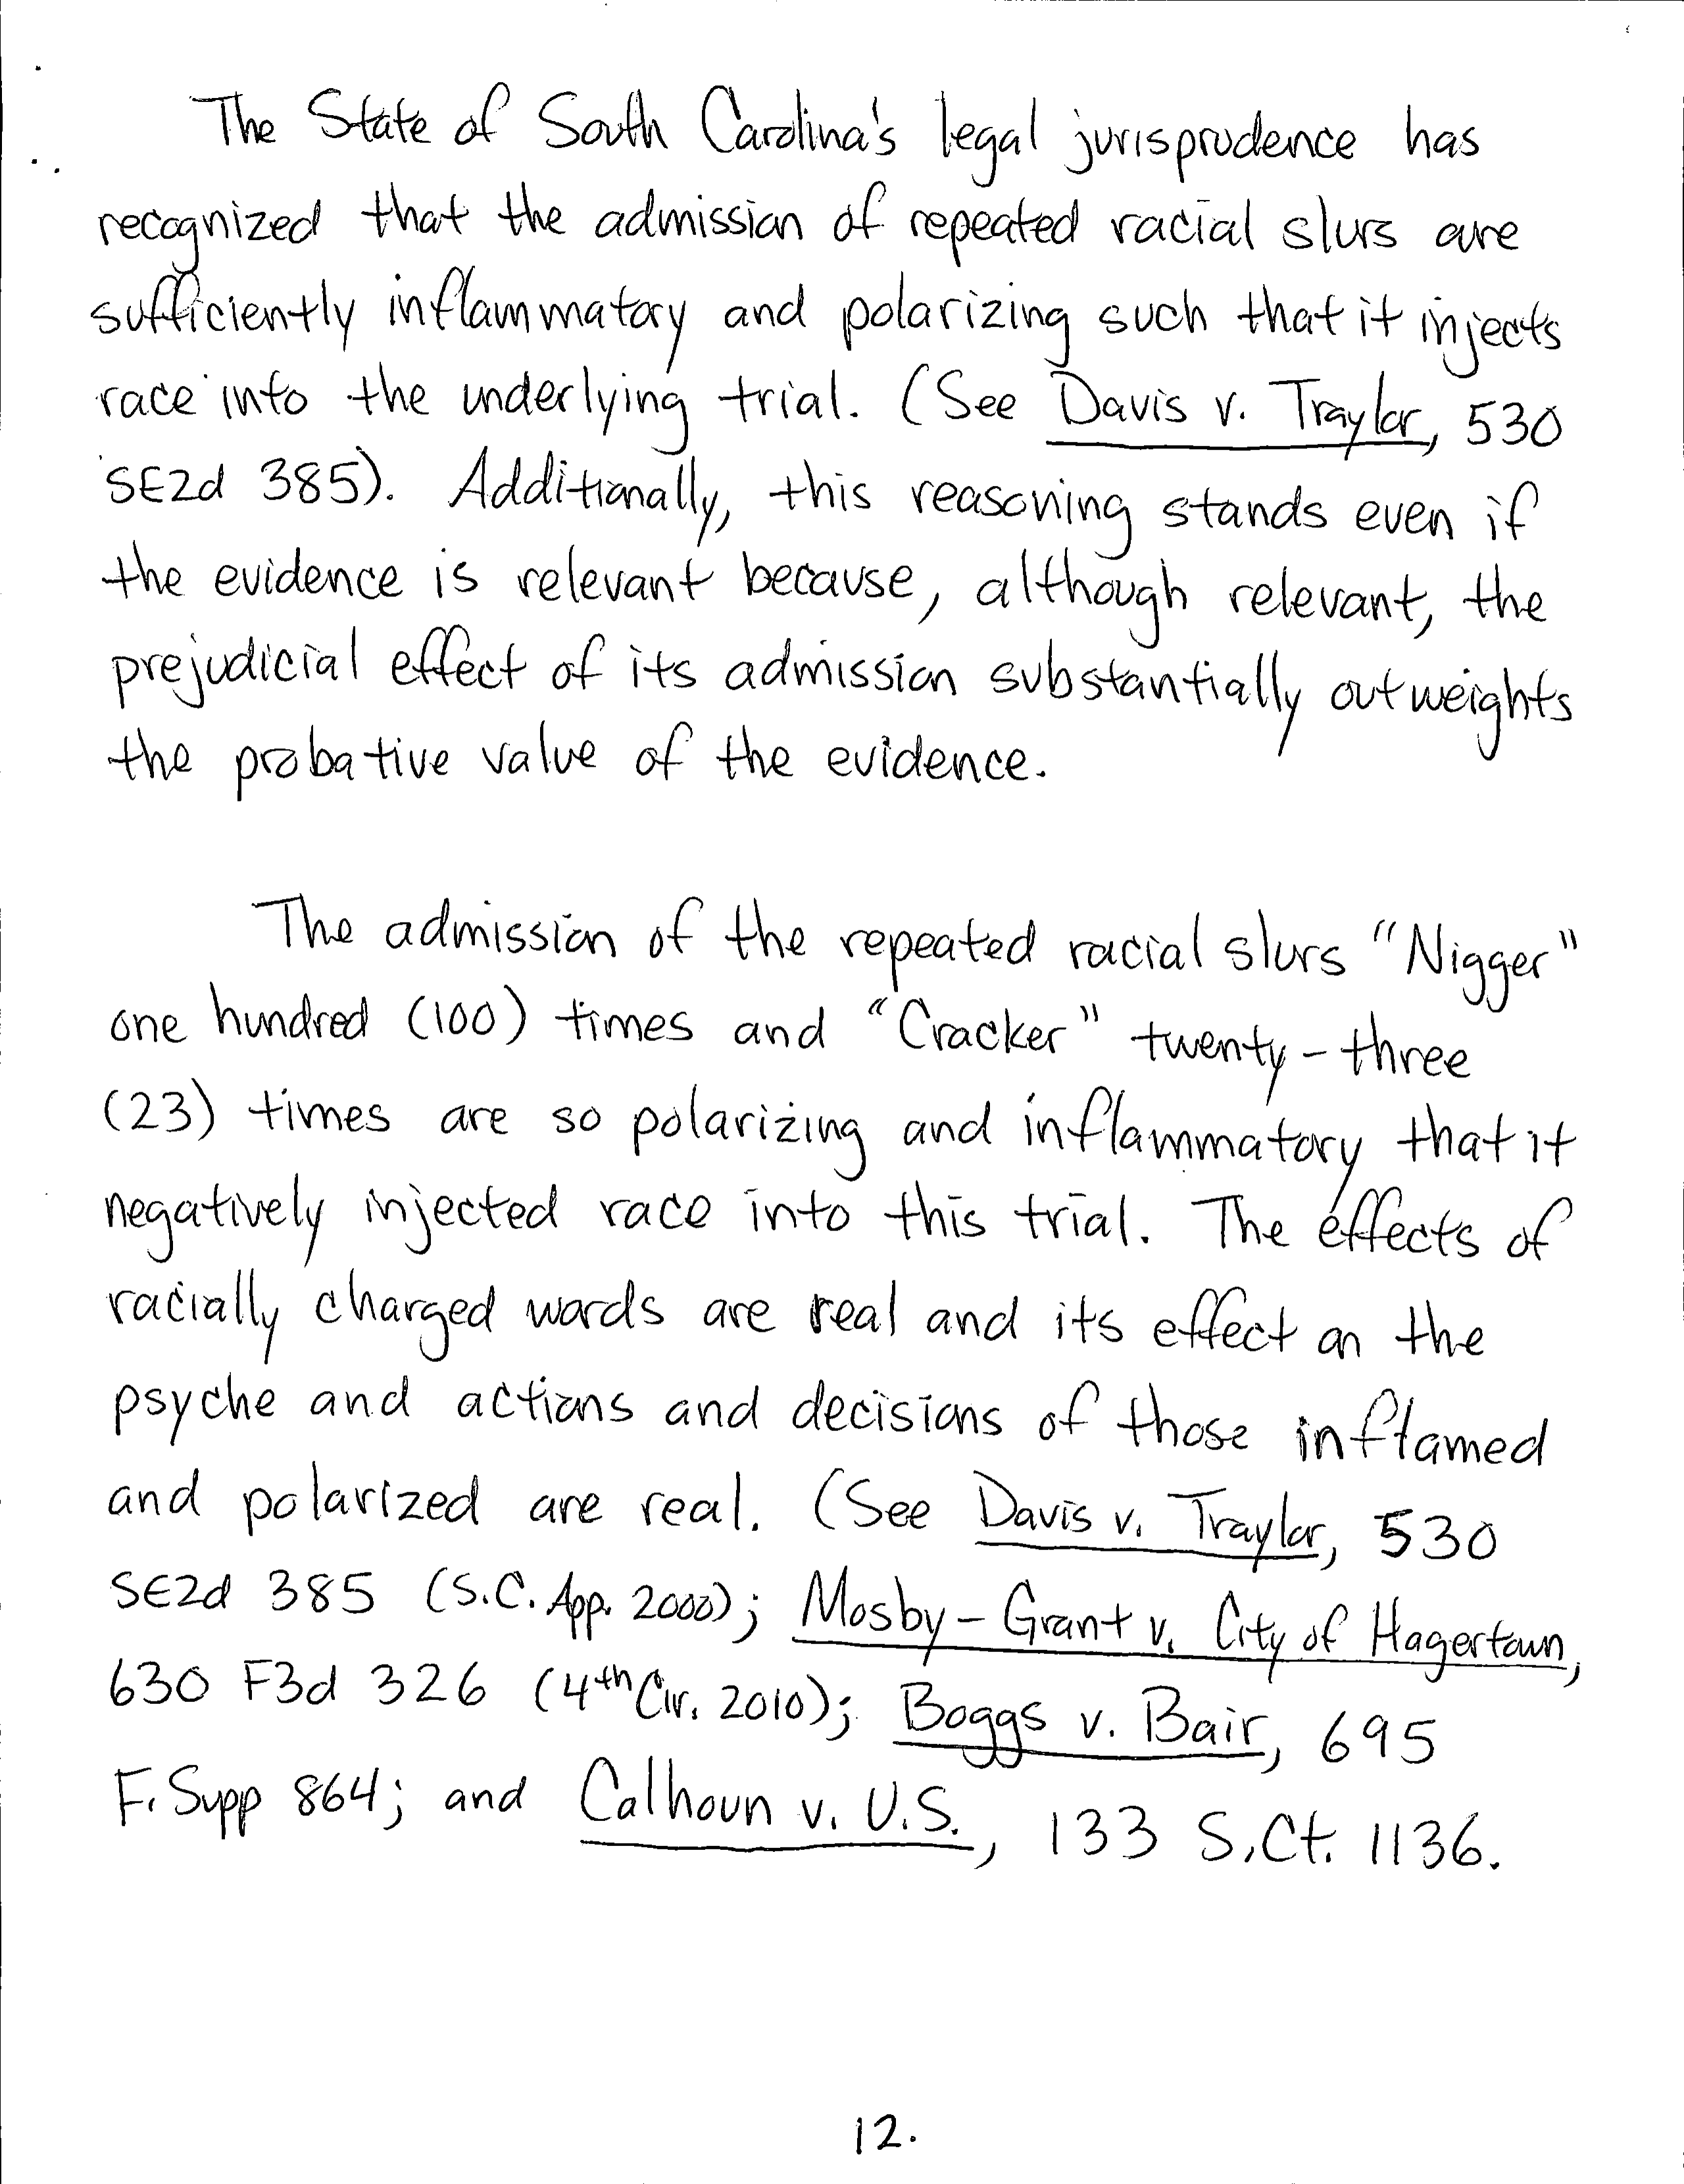 The State of South Carolina's legal jurisprudence has
recognized that the admission of repeated racial slurs are
sufficiently inflammatory and polarizing such that it injects
race into the underlying trial. (See Davis v. Traylor, 530
SE2d 385). Additionally, this reasoning stands even if
the evidence is relevant because, although relevant, the
prejudicial effect of its admission substantially outweights
the probative value of the evidence.
The admission of the repeated racial slurs "Nigger"
one hundred (100) times and "Cracker" twenty-three
(23) times are so polarizing and inflammatory that it
negatively injected race into this trial. The effects of
racially charged words are real and its effect on the
psyche and actions and decisions of those inflamed
and polarized are real. (See Davis v. Traylor, 530
SE2d 385 (S.C. App. 2000); Mosby-Grant v. City of Hagertown,
630 F3d 326 (4th Cir. 2010); Boggs v. Bair, 695
F. Supp 864; and Calhoun v. U.S., 133 S.Ct. 1136.
12.